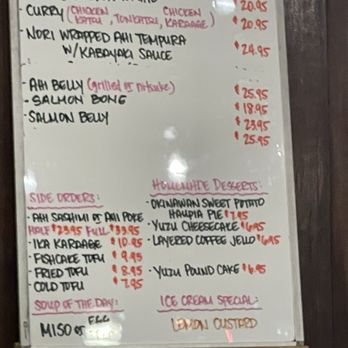 $20.95
CURRY (CHICKEN KATSU, TONKATSU, CHICKEN KARAAGE) $20.95
NORI WRAPPED AHI TEMPURA
W/ KABAYAKI SAUCE $24.95
AHI BELLY (grilled or nitsuke) $25.95
- SALMON BONE $18.95
- SALMON BELLY $23.95
$25.95
SIDE ORDERS:
· AHI SASHIMI or AHI POKE
HALF $23.95 FULL $33.95
· IKA KARAAGE $10.95
· FISHCAKE TOFU $9.95
· FRIED TOFU $8.95
· COLD TOFU $7.95
SOUP OF THE DAY:
MISO or EGG
HOMEMADE DESSERTS:
· OKINAWAN SWEET POTATO
HAUPIA PIE $7.95
· YUZU CHEESECAKE $6.95
· LAYERED COFFEE JELLO $6.95
· YUZU POUND CAKE $6.95
ICE CREAM SPECIAL:
LEMON CUSTARD